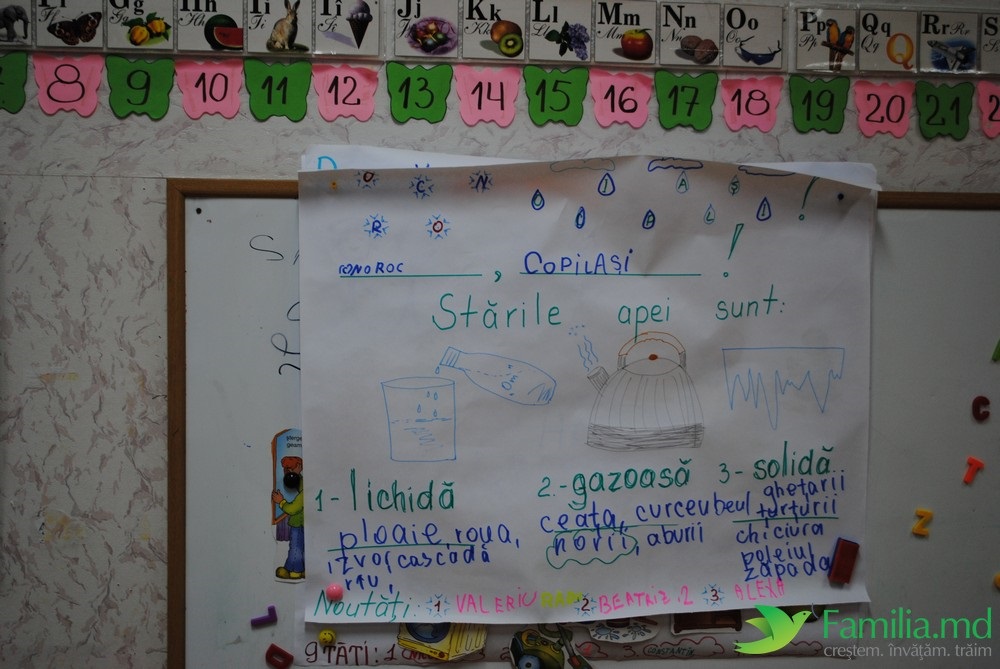 Gg Hh Ii Îî Jj Kk Ll Mm Nn Oo Pp Qq Rr
8 9 10 11 12 13 14 15 16 17 18 19 20 21
O C N
R O
ONOROC , COPILAȘI !
Stările apei sunt:
1 - lichidă
ploaie, roua,
izvor cascadă
rîu,
2. - gazoasă
ceața, curceubeul
norii, aburii
3 - solidă
ghețarii
țurțurii
chiciura
poleiul
zăpada
Noutăți: 1 VALERIU 2 BEATRIZ. 2 3 ALEXA
C
T
Z
Familia.md
creștem. învățăm. trăim